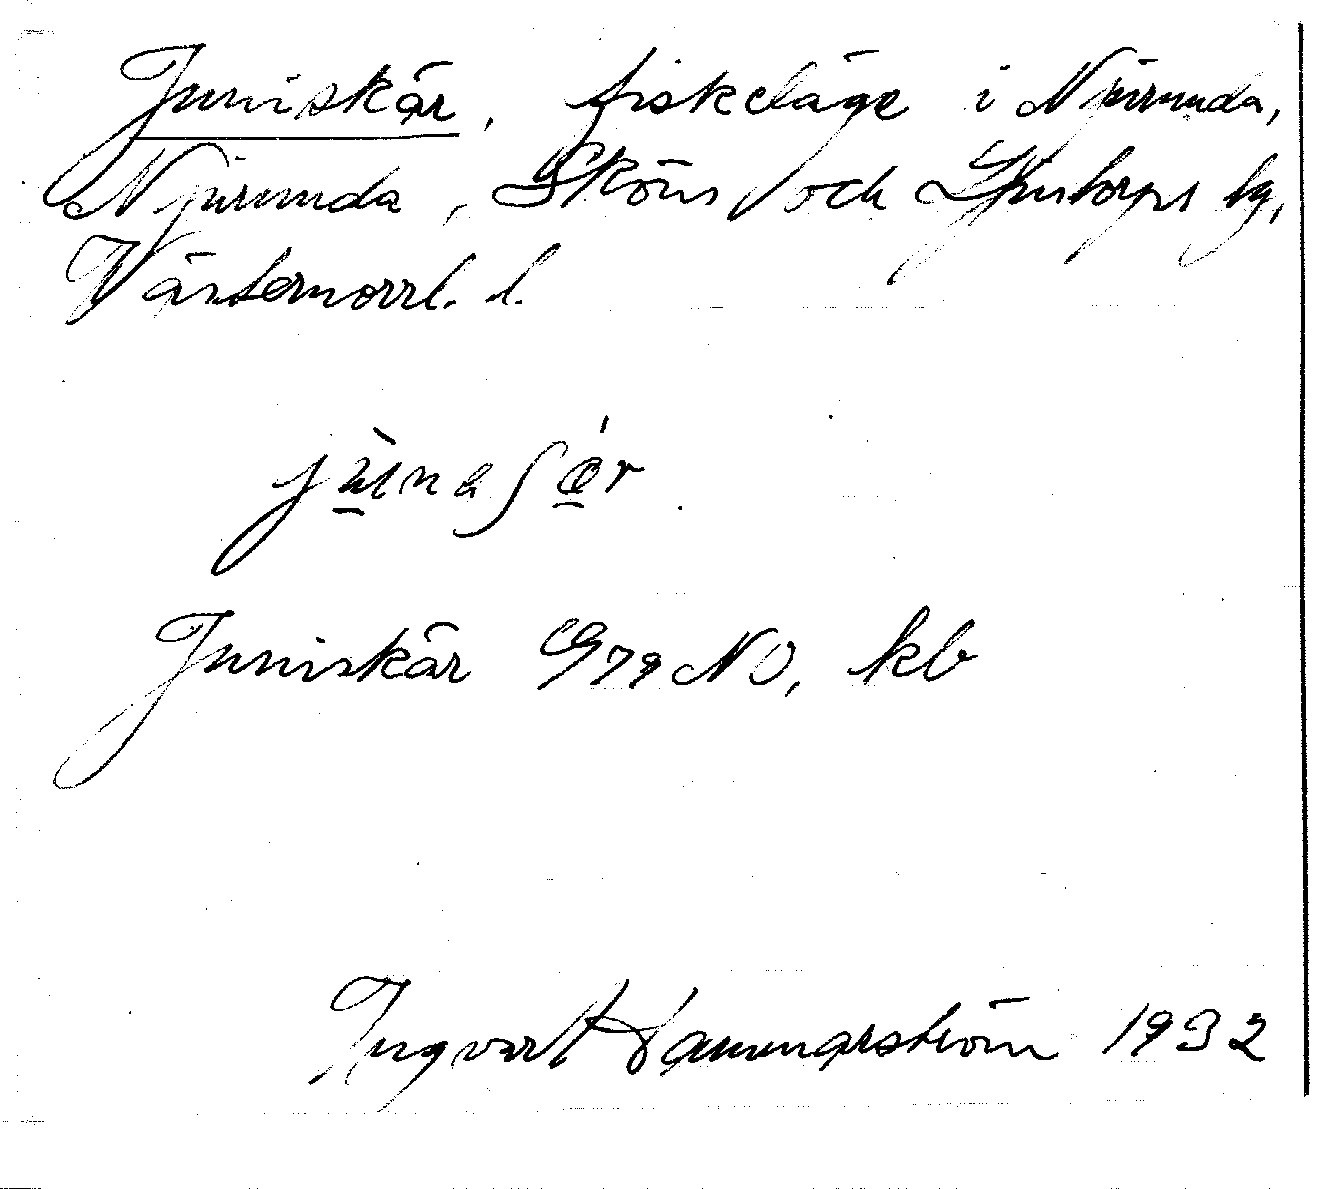 Juniskär, fiskeläge i Njurunda,
Njurunda, Sköns och Ljustorps tg,
Västernorrl. l.
Juniskär G79 NO, kb
Ingvart Hammarström 1932